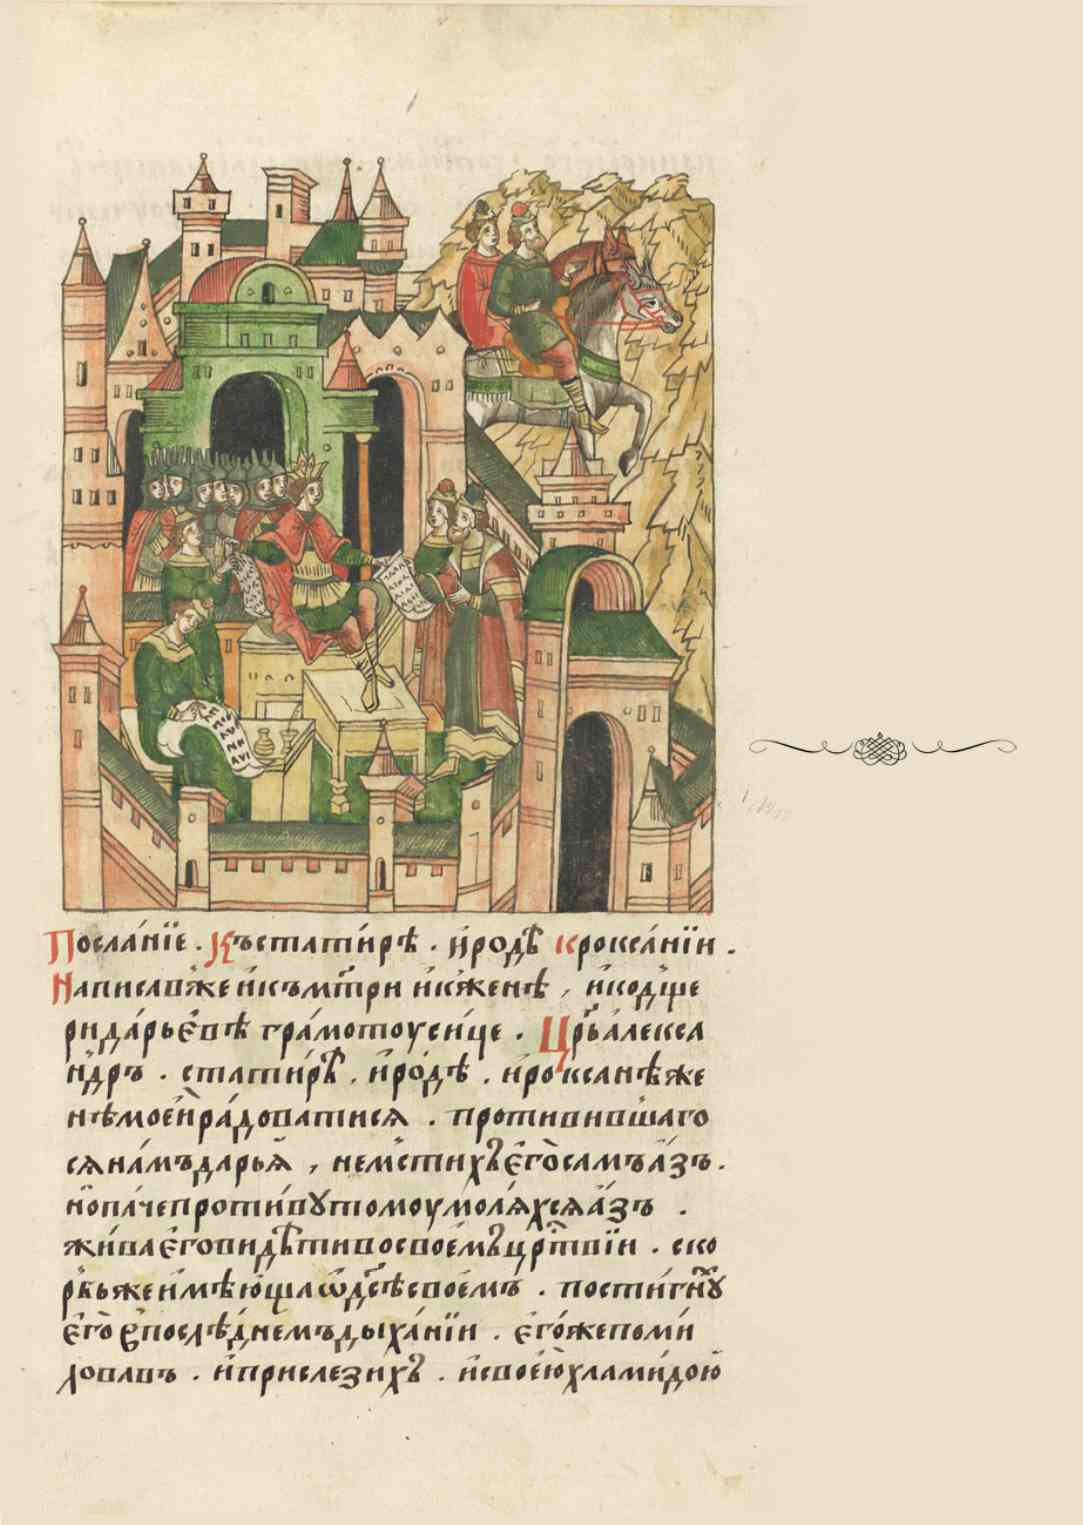 Посла́нїе . Къстати́рѣ . и҆родѣ̑ кроѯа́нїи .
Написавже икъмт҃ри икженѣ , икодще
рида́рьєвѣ гра́мотоуси́це . Цр҃ьа́леѯа
ндръ . стати́рѣ . и҆ро́дѣ . и҆роксанѣже
нѣмоеи҆ра́доватися . противившаго
сяна́мъдарья , немстихъ є҆го̀самъа́зъ .
но̑па́чепроти́вꙋтомоумоля́хсяа́зъ .
жи́ва є҆гови́дѣтивосвое́мъцр҃твїи . ско
рбьжеимѣ́ющаѿдс҃ѣсвое́мъ . пости́гнꙋ
є҆го̀ впослѣ́днемъдыха́нїи . є҆го́жепоми
ловавъ . и҆прислезихъ . и҆своє́юхлами́дою